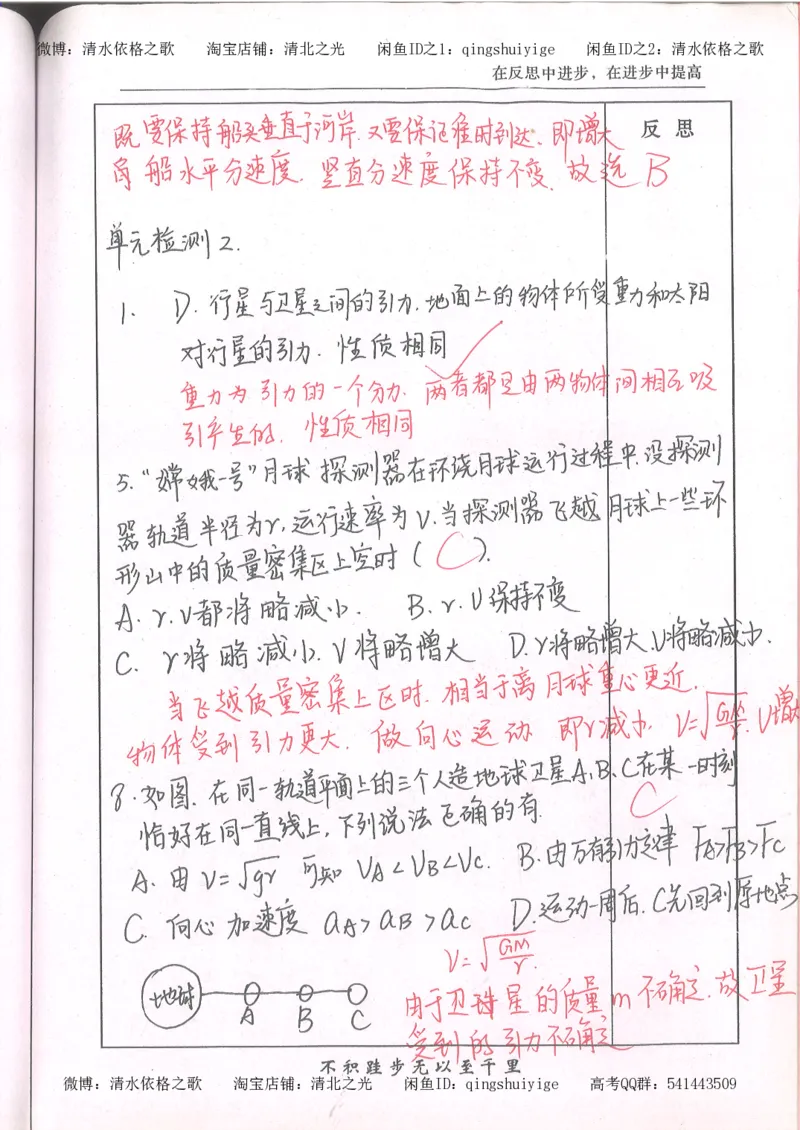 微博：清水依格之歌 淘宝店铺：清北之光 闲鱼ID之1：qingshuiyige 闲鱼ID之2：清水依格之歌
在反思中进步，在进步中提高
反思
既要保持船头垂直于河岸.又要保证准时到达、即增大
船水平分速度.竖直分速度保持不变、故选 B
单元检测2.
1. D.行星与卫星之间的引力.地面上的物体所受重力和太阳
对行星的引力.性质相同
重力为引力的一个分力.两者都是由两物体间相互吸
引产生的.性质相同
5.“嫦娥一号”月球探测器在环绕月球运行过程中.设探测
器轨道半径为r,运行速率为v.当探测器飞越月球上一些环
形山中的质量密集区上空时( C ).
A. r.v都将略减小. B. r.v保持不变
C. r将略减小.v将略增大 D.r将略增大.v将略减小.
当飞越质量密集上区时.相当于离月球重心更近.
物体受到引力更大.做向心运动 即r减小. v=√GM/r. v增大
8.如图.在同一轨道平面上的三个人造地球卫星A、B、C在某一时刻
恰好在同一直线上,下列说法正确的有. C
A. 由 v=√gr 可知 vA<vB<vC. B.由万有引力定律 FA>FB>FC
C. 向心加速度 aA>aB>aC D.运动一周后.C先回到原地点
v=√GM/r.
地球
A B C
由于卫星的质量m不确定.故卫星
受到的引力不确定
不积跬步无以至千里
微博：清水依格之歌 淘宝店铺：清北之光 闲鱼ID：qingshuiyige 高考QQ群：541443509